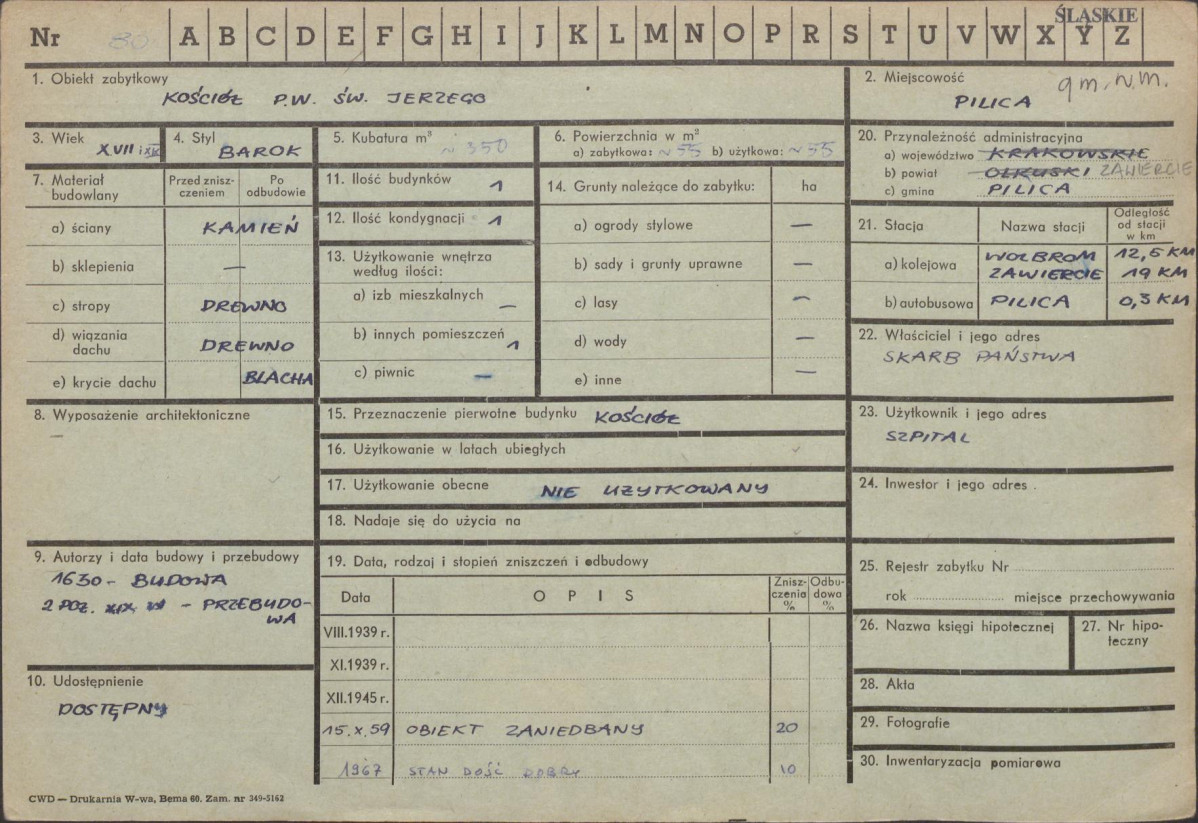 ŚLĄSKIE
Nr 80. A B C D E F G H I J K L M N O P R S T U V W X Y Z
1. Obiekt zabytkowy
KOŚCIÓŁ P.W. ŚW. JERZEGO
2. Miejscowość
gm. N. M.
PILICA
3. Wiek
XVII i XIX
4. Styl
BAROK
5. Kubatura m³
~ 350
6. Powierzchnia w m²
a) zabytkowa: ~ 55 b) użytkowa: ~ 55
20. Przynależność administracyjna
a) województwo KRAKOWSKIE
b) powiat OLKUSKI ZAWIERCIE
c) gmina PILICA
7. Materiał budowlany
Przed zniszczeniem
Po odbudowie
a) ściany KAMIEŃ
b) sklepienia —
c) stropy DREWNO
d) wiązania dachu DREWNO
e) krycie dachu BLACHA
11. Ilość budynków 1
12. Ilość kondygnacji 1
13. Użytkowanie wnętrza
według ilości:
a) izb mieszkalnych —
b) innych pomieszczeń 1
c) piwnic —
14. Grunty należące do zabytku: ha
a) ogrody stylowe —
b) sady i grunty uprawne —
c) lasy —
d) wody —
e) inne —
21. Stacja
Nazwa stacji
Odległość
od stacji
w km
a) kolejowa WOLBROM 12,5 KM
ZAWIERCIE 19 KM
b) autobusowa PILICA 0,3 KM
22. Właściciel i jego adres
SKARB PAŃSTWA
8. Wyposażenie architektoniczne
—
15. Przeznaczenie pierwotne budynku KOŚCIÓŁ
16. Użytkowanie w latach ubiegłych
17. Użytkowanie obecne NIE UŻYTKOWANY
18. Nadaje się do użycia na
23. Użytkownik i jego adres
SZPITAL
24. Inwestor i jego adres
9. Autorzy i data budowy i przebudowy
1630 - BUDOWA
2 POŁ. XIX W - PRZEBUDO-
WA
10. Udostępnienie
DOSTĘPNY
19. Data, rodzaj i stopień zniszczeń i odbudowy
Data
OPIS
Znisz-
czenia
%
Odbu-
dowa
%
VIII.1939 r.
XI.1939 r.
XII.1945 r.
15.X.59 OBIEKT ZANIEDBANY 20
1967 STAN DOŚĆ DOBRY 10
25. Rejestr zabytku Nr
rok miejsce przechowywania
26. Nazwa księgi hipotecznej
27. Nr hipo-
teczny
28. Akta
29. Fotografie
30. Inwentaryzacja pomiarowa
CWD — Drukarnia W-wa, Bema 60. Zam. nr 349-5162